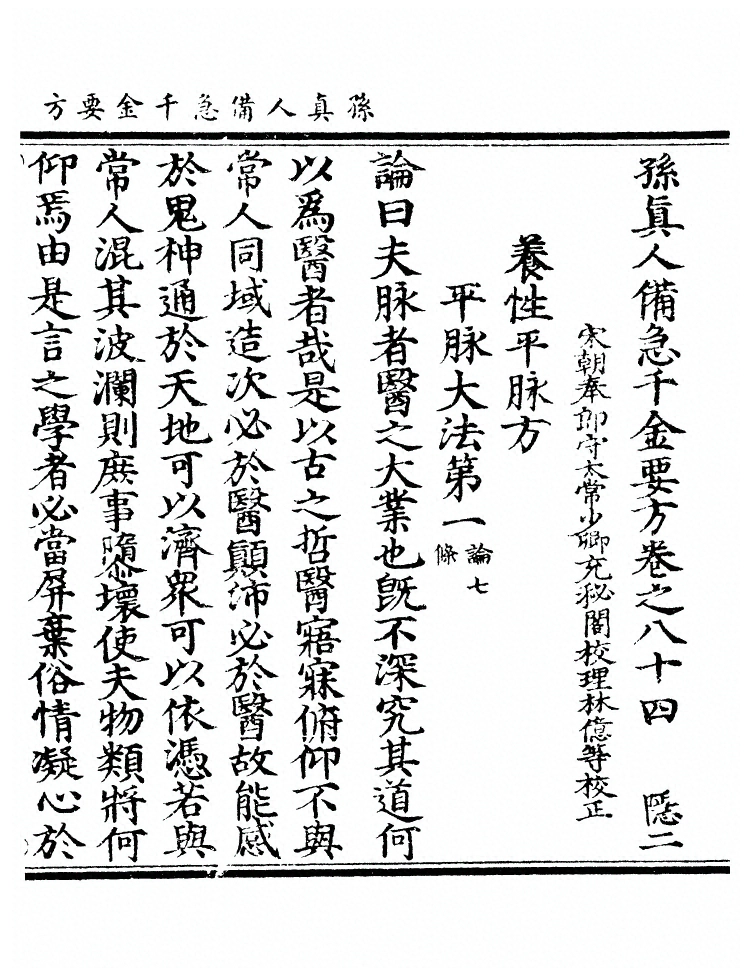 孫真人備急千金要方
孫真人備急千金要方卷之八十四 隱二
宋朝奉郎守太常少卿充秘閣校理林億等校正
養性平脉方
平脉大法第一 論七條
論曰夫脉者醫之大業也旣不深究其道何
以爲醫者哉是以古之哲醫寤寐俯仰不與
常人同域造次必於醫顚沛必於醫故能感
於鬼神通於天地可以濟衆可以依憑若與
常人混其波瀾則庶事隳壞使夫物類將何
仰焉由是言之學者必當屏棄俗情凝心於